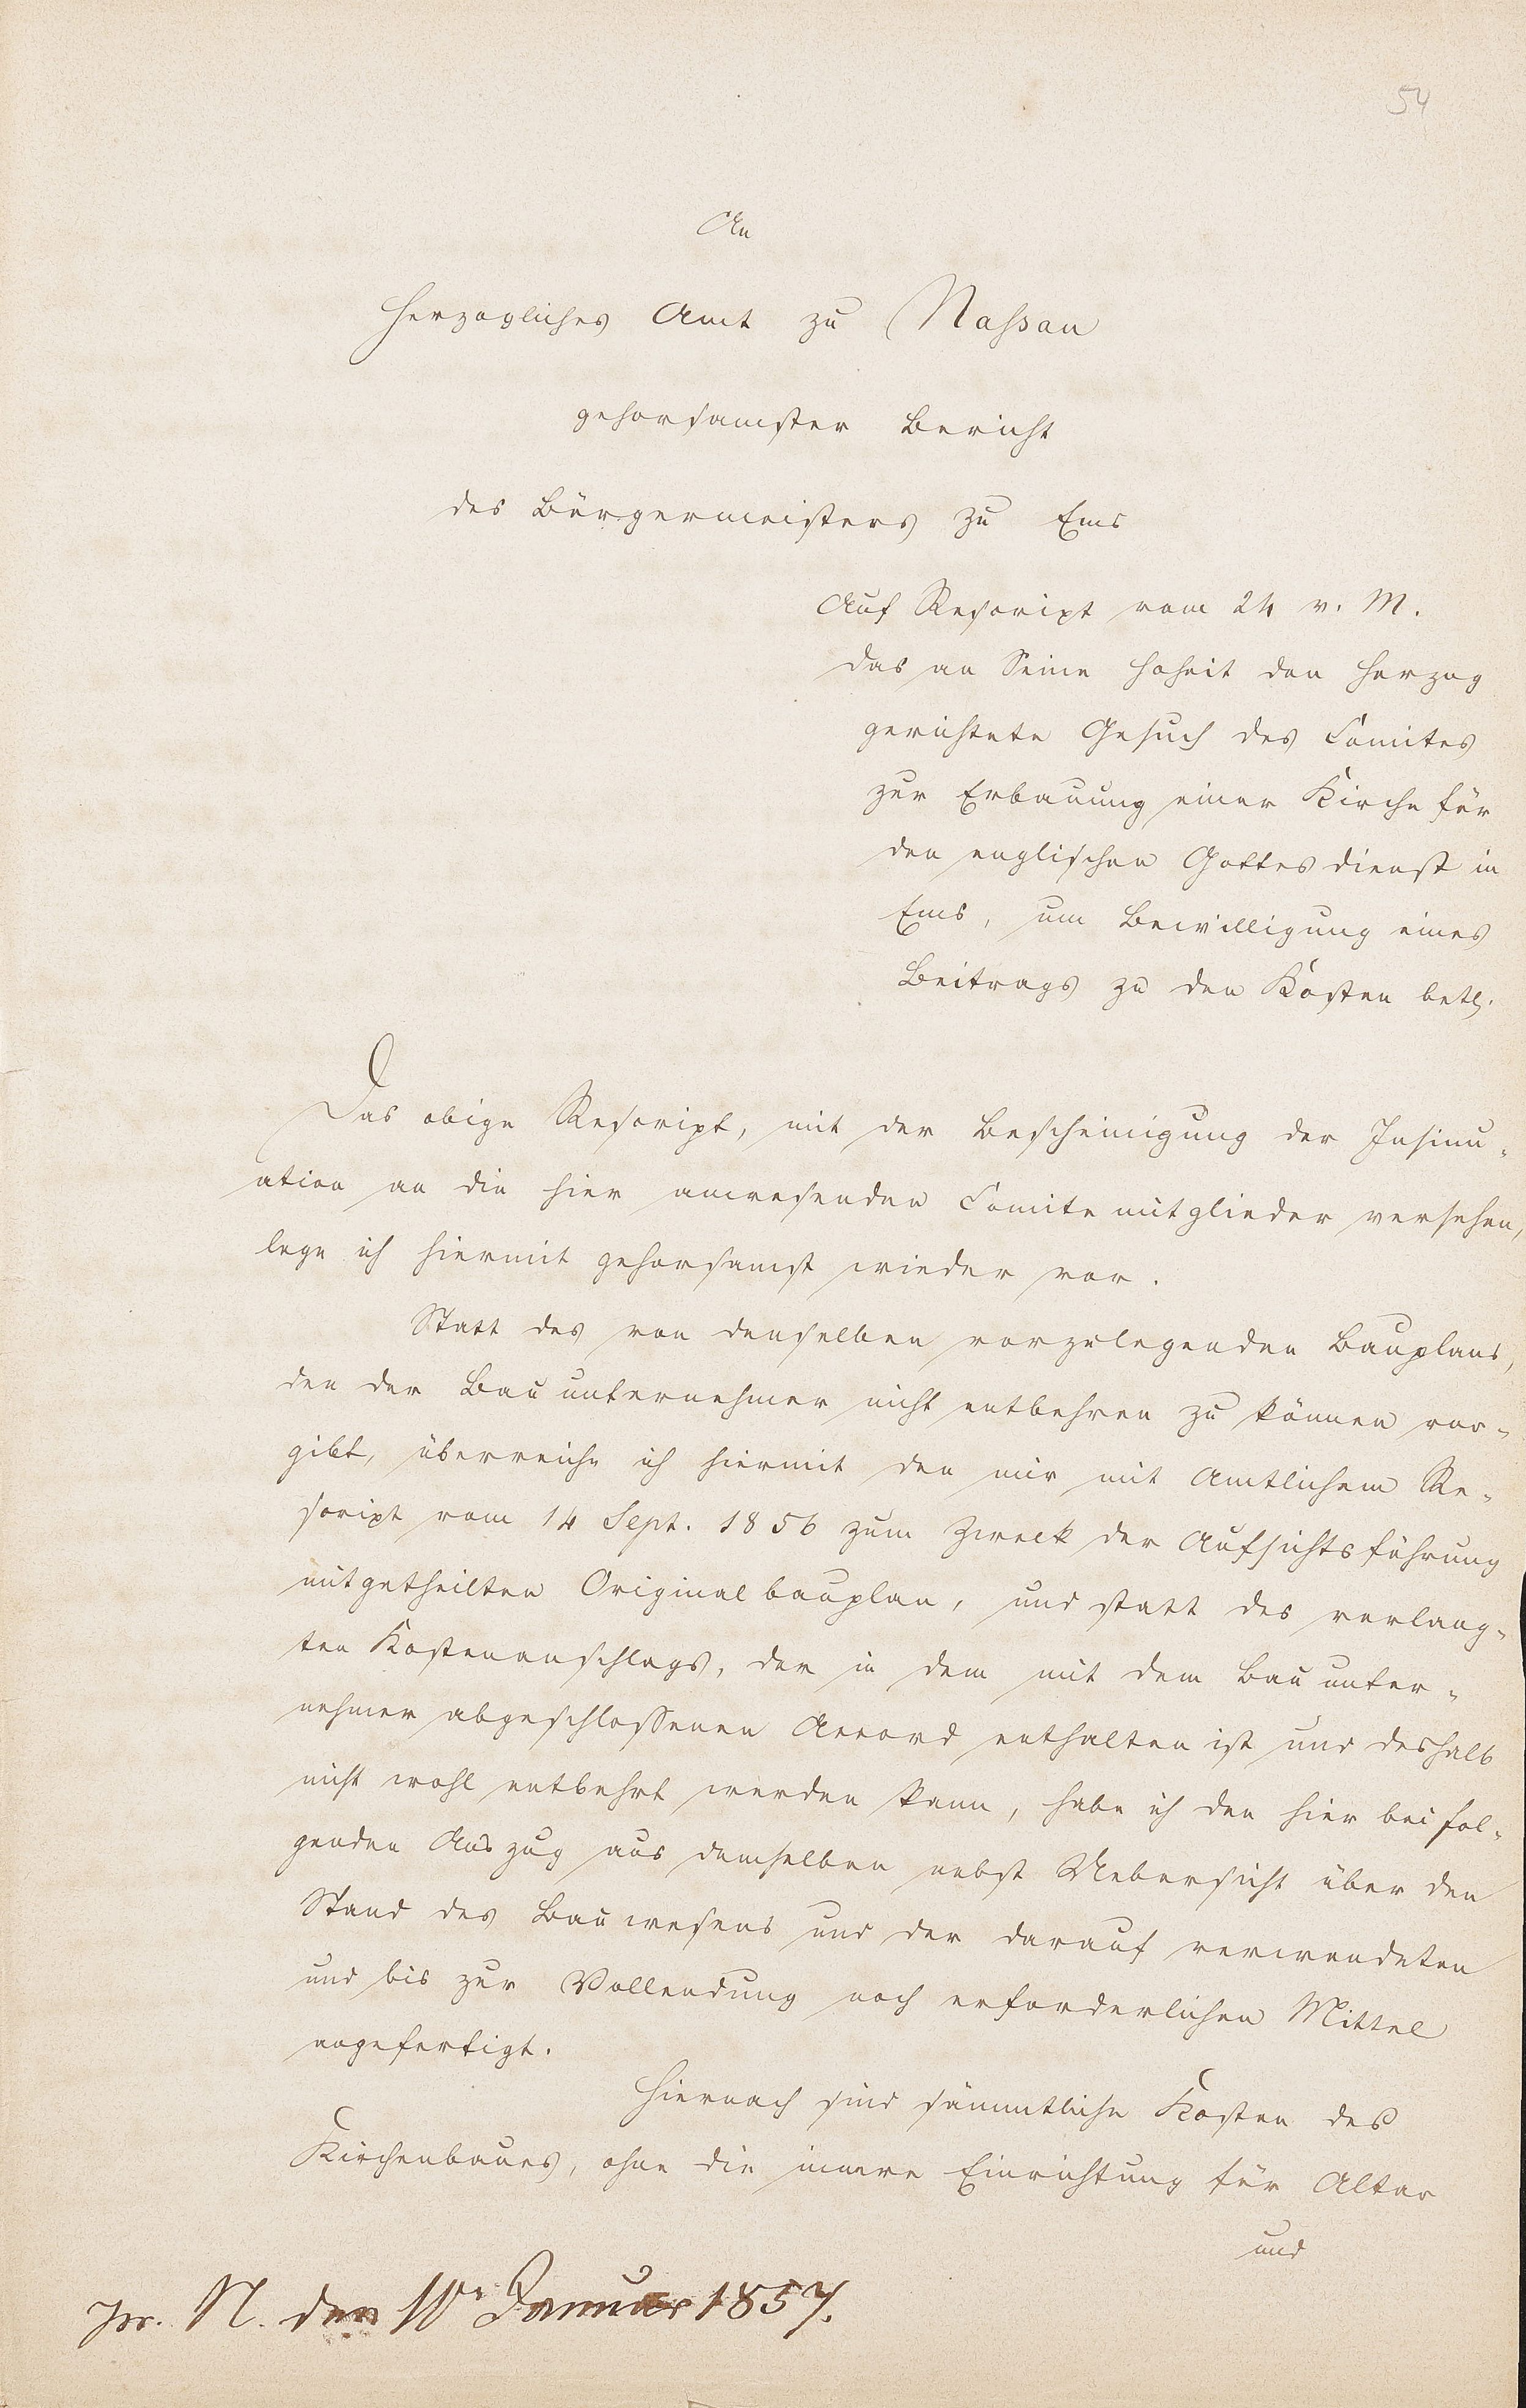 54
An
Herzogliches Amt zu Nassau
gehorsamster Bericht
des Bürgermeisters zu Ems
Auf Rescript vom 24 v. M.
das an Seine Hoheit den Herzog
gerichtete Gesuch des Comites
zur Erbauung einer Kirche für
den englischen Gottesdienst in
Ems, um Bewilligung eines
Beitrags zu den Kosten betr.
Das obige Rescript, mit der Bescheinigung der Insinu-
ation an die hier anwesenden Comitemitglieder versehen,
lege ich hiermit gehorsamst wieder vor.
Statt des von denselben vorzulegenden Bauplans,
den der Bauunternehmer nicht entbehren zu können vor-
gibt, überreiche ich hiermit den mir mit Amtlichem Re-
script vom 14 Sept. 1856 zum Zweck der Aufsichtsführung
mitgetheilten Originalbauplan, und statt des verlang-
ten Kostenanschlags, der in dem mit dem Bauunter-
nehmer abgeschlossenen Accord enthalten ist und deshalb
nicht wohl entbehrt werden kann, habe ich den hier beifol-
genden Auszug aus demselben nebst Uebersicht über den
Stand des Bauwesens und der darauf verwendeten
und bis zur Vollendung noch erforderlichen Mittel
angefertigt.
Hiernach sind sämmtliche Kosten des
Kirchenbaues, ohne die innere Einrichtung für Altar
und
pr. N. den 10r Januar 1857.